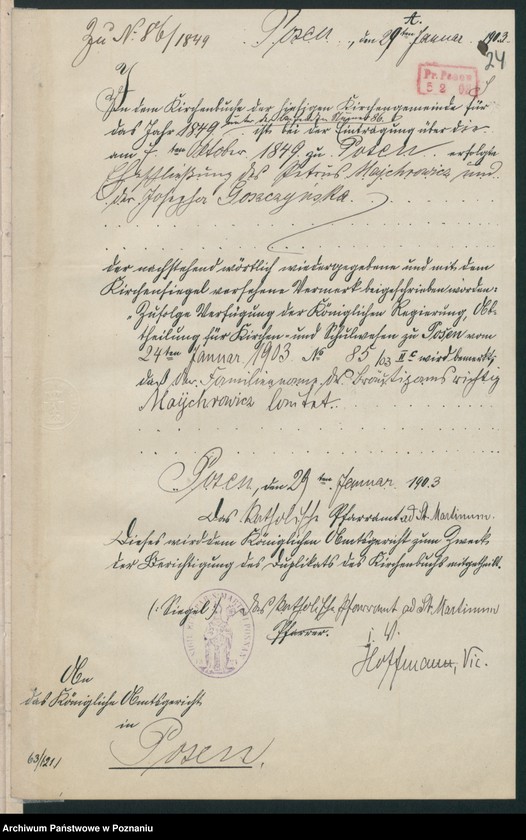 Zu № 86/1849
Posen, den 29ten Januar 1903.
24
Pr. Posen
In dem Kirchenbuche der hiesigen Kirchengemeinde für
das Jahr 1849 ist bei der Eintragung über die
am ten Oktober 1849 zu Posen erfolgte
Eheschließung des Petrus Majchrowicz und
der Josepha Goszczyńska.
der nachstehend wörtlich wiedergegebene und mit dem
Kirchensiegel versehene Vermerk beigeschrieben worden:
"Zufolge Verfügung der Königlichen Regierung, Ab-
theilung für Kirchen- und Schulwesen zu Posen vom
24ten Januar 1903 № 85/03 IIc wird bemerkt,
daß der Familienname des Bräutigams richtig
Majchrowicz lautet.
Posen, den 29ten Januar 1903
Das Katholische Pfarramt ad St. Martinum.
Dieses wird dem Königlichen Amtsgericht zum Zweck
der Berichtigung des Duplikats des Kirchenbuchs mitgetheilt.
(: Siegel :) Das Katholische Pfarramt ad St. Martinum
Pfarrer.
i. V.
Hoffmann, Vic.
An
das Königliche Amtsgericht
in
Posen.
Archiwum Państwowe w Poznaniu